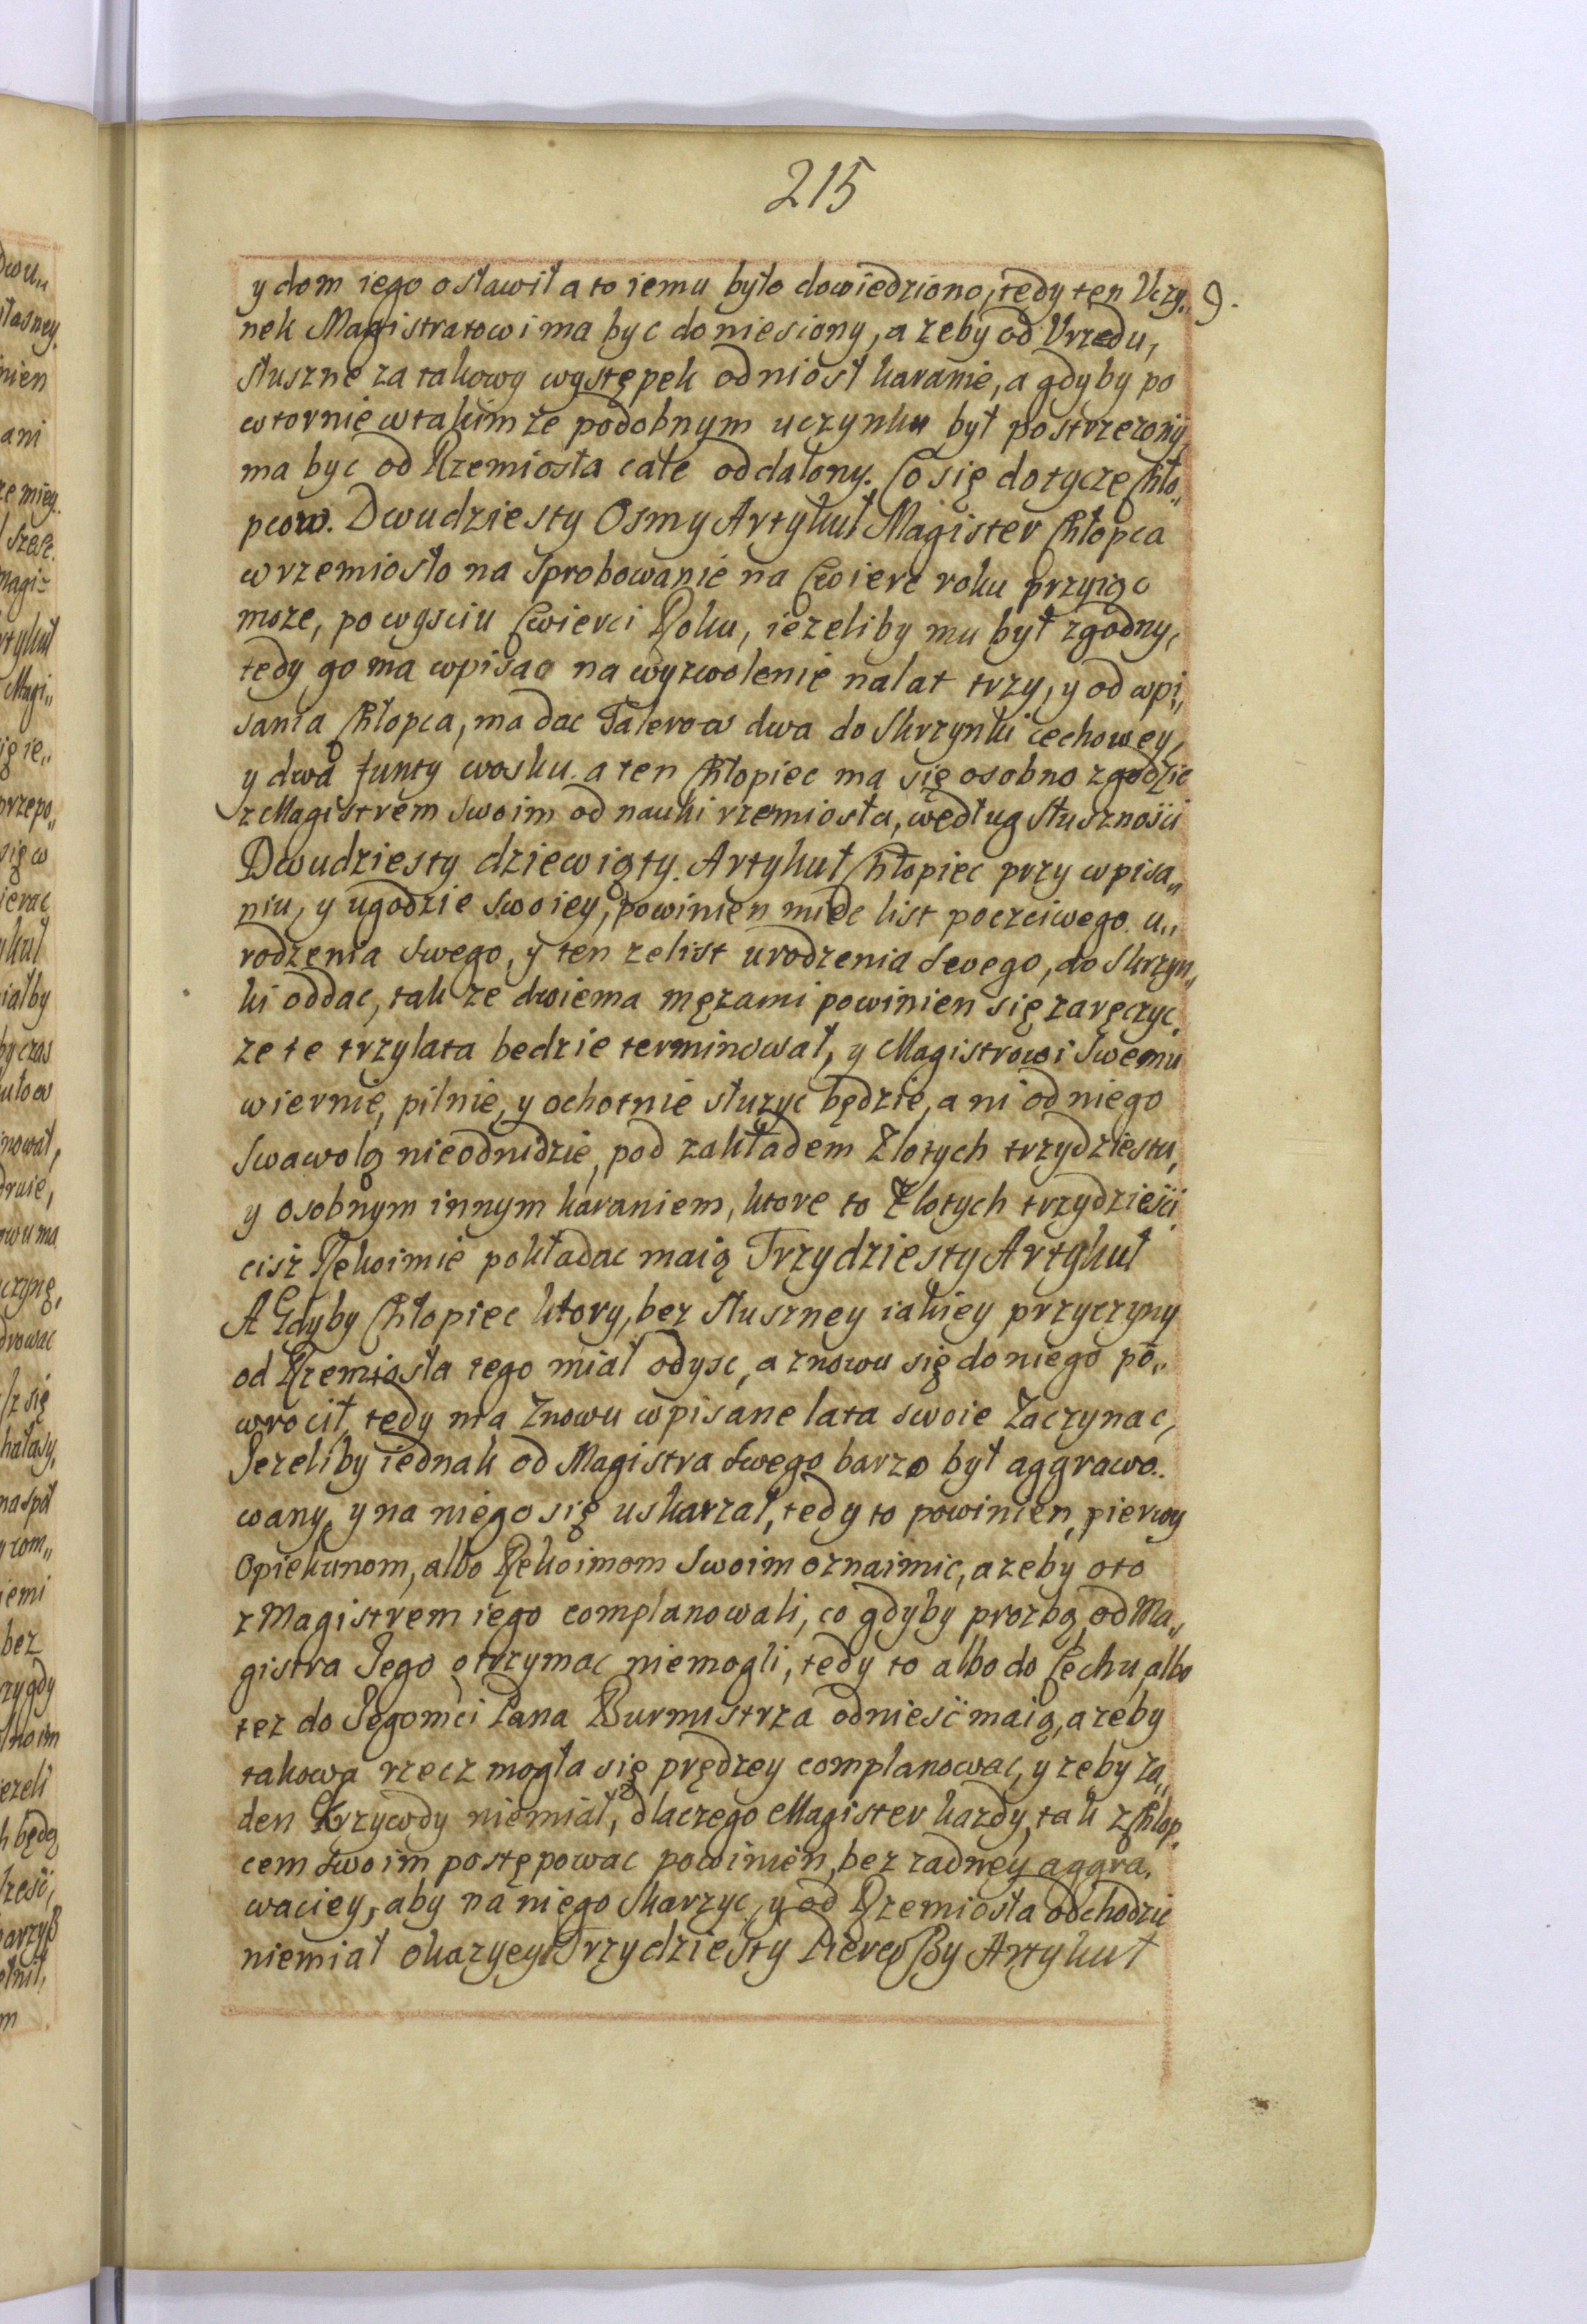 215
y dom iego osławił a to iemu było dowiedziono, tedy ten Uczy„ 9.
nek Magistratowi ma byc doniesiony, a zeby od Vrzedu,
słuszne za takowy występek odniosł karanie, a gdyby po
wtornie w takimze podobnym uczynku był postrzezony,
ma byc od Rzemiosła cale oddalony. Co się dotycze Chło„
pcow. Dwudziesty Osmy Artykuł Magister Chłopca
w rzemiosło na sprobowanie na Cwierc roku przyiąc
moze, po wysciu Cwierci Roku, iezeliby mu był zgodny,
tedy go ma wpisac na wyzwolenie na lat trzy, y od wpi„
sania Chłopca, ma dac Talerow dwa do Skrzynki cechowey,
y dwa funty wosku. a ten Chłopiec ma się osobno zgodzic
z Magistrem swoim od nauki rzemiosła, według słusznosci
Dwudziesty dziewiąty. Artykuł Chłopiec przy wpisa„
niu, y ugodzie swoiey, powinien miec list poczciwego u„
rodzenia swego, y ten ze list urodzenia swego, do Skrzyn„
ki oddac, tak ze dwiema męzami powinien się zaręczyc,
ze te trzy lata bedzie terminował, y Magistrowi swemu
wiernie, pilnie, y ochotnie słuzyc będzie, ani od niego
swawolą nieodnidzie, pod zakładem Złotych trzydziestu,
y osobnym innym karaniem, ktore to Złotych trzydzieści
cisz Rękoimie pokładac maią Trzydziesty Artykuł
A Gdyby Chłopiec ktory, bez słuszney iakiey przyczyny
od Rzemiosła tego miał odysc, a znowu się do niego po„
wrocił, tedy ma Znowu wpisane lata swoie Zaczynac,
Iezeliby iednak od Magistra swego barzo był aggrawo„
wany, y na niego się uskarzał, tedy to powinien, pierwy
Opiekunom, albo Rękoimom swoim oznaimic, azeby o to
z Magistrem iego complanowali, co gdyby prozbą od Ma„
gistra Iego otrzymac niemogli, tedy to albo do Cechu, albo
tez do Iegomci Pana Burmistrza odnieść maią, azeby
takowa rzecz mogła się prędzey complanowac, y zeby za„
den Krzywdy niemiał, dlaczego Magister kazdy, tak z Chłop„
cem swoim postępowac powinien, bez zadney aggra„
waciey, aby na niego skarzyc, y od Rzemiosła odchodzic
niemiał okazyey Trzydziesty PierwSzy Artykuł